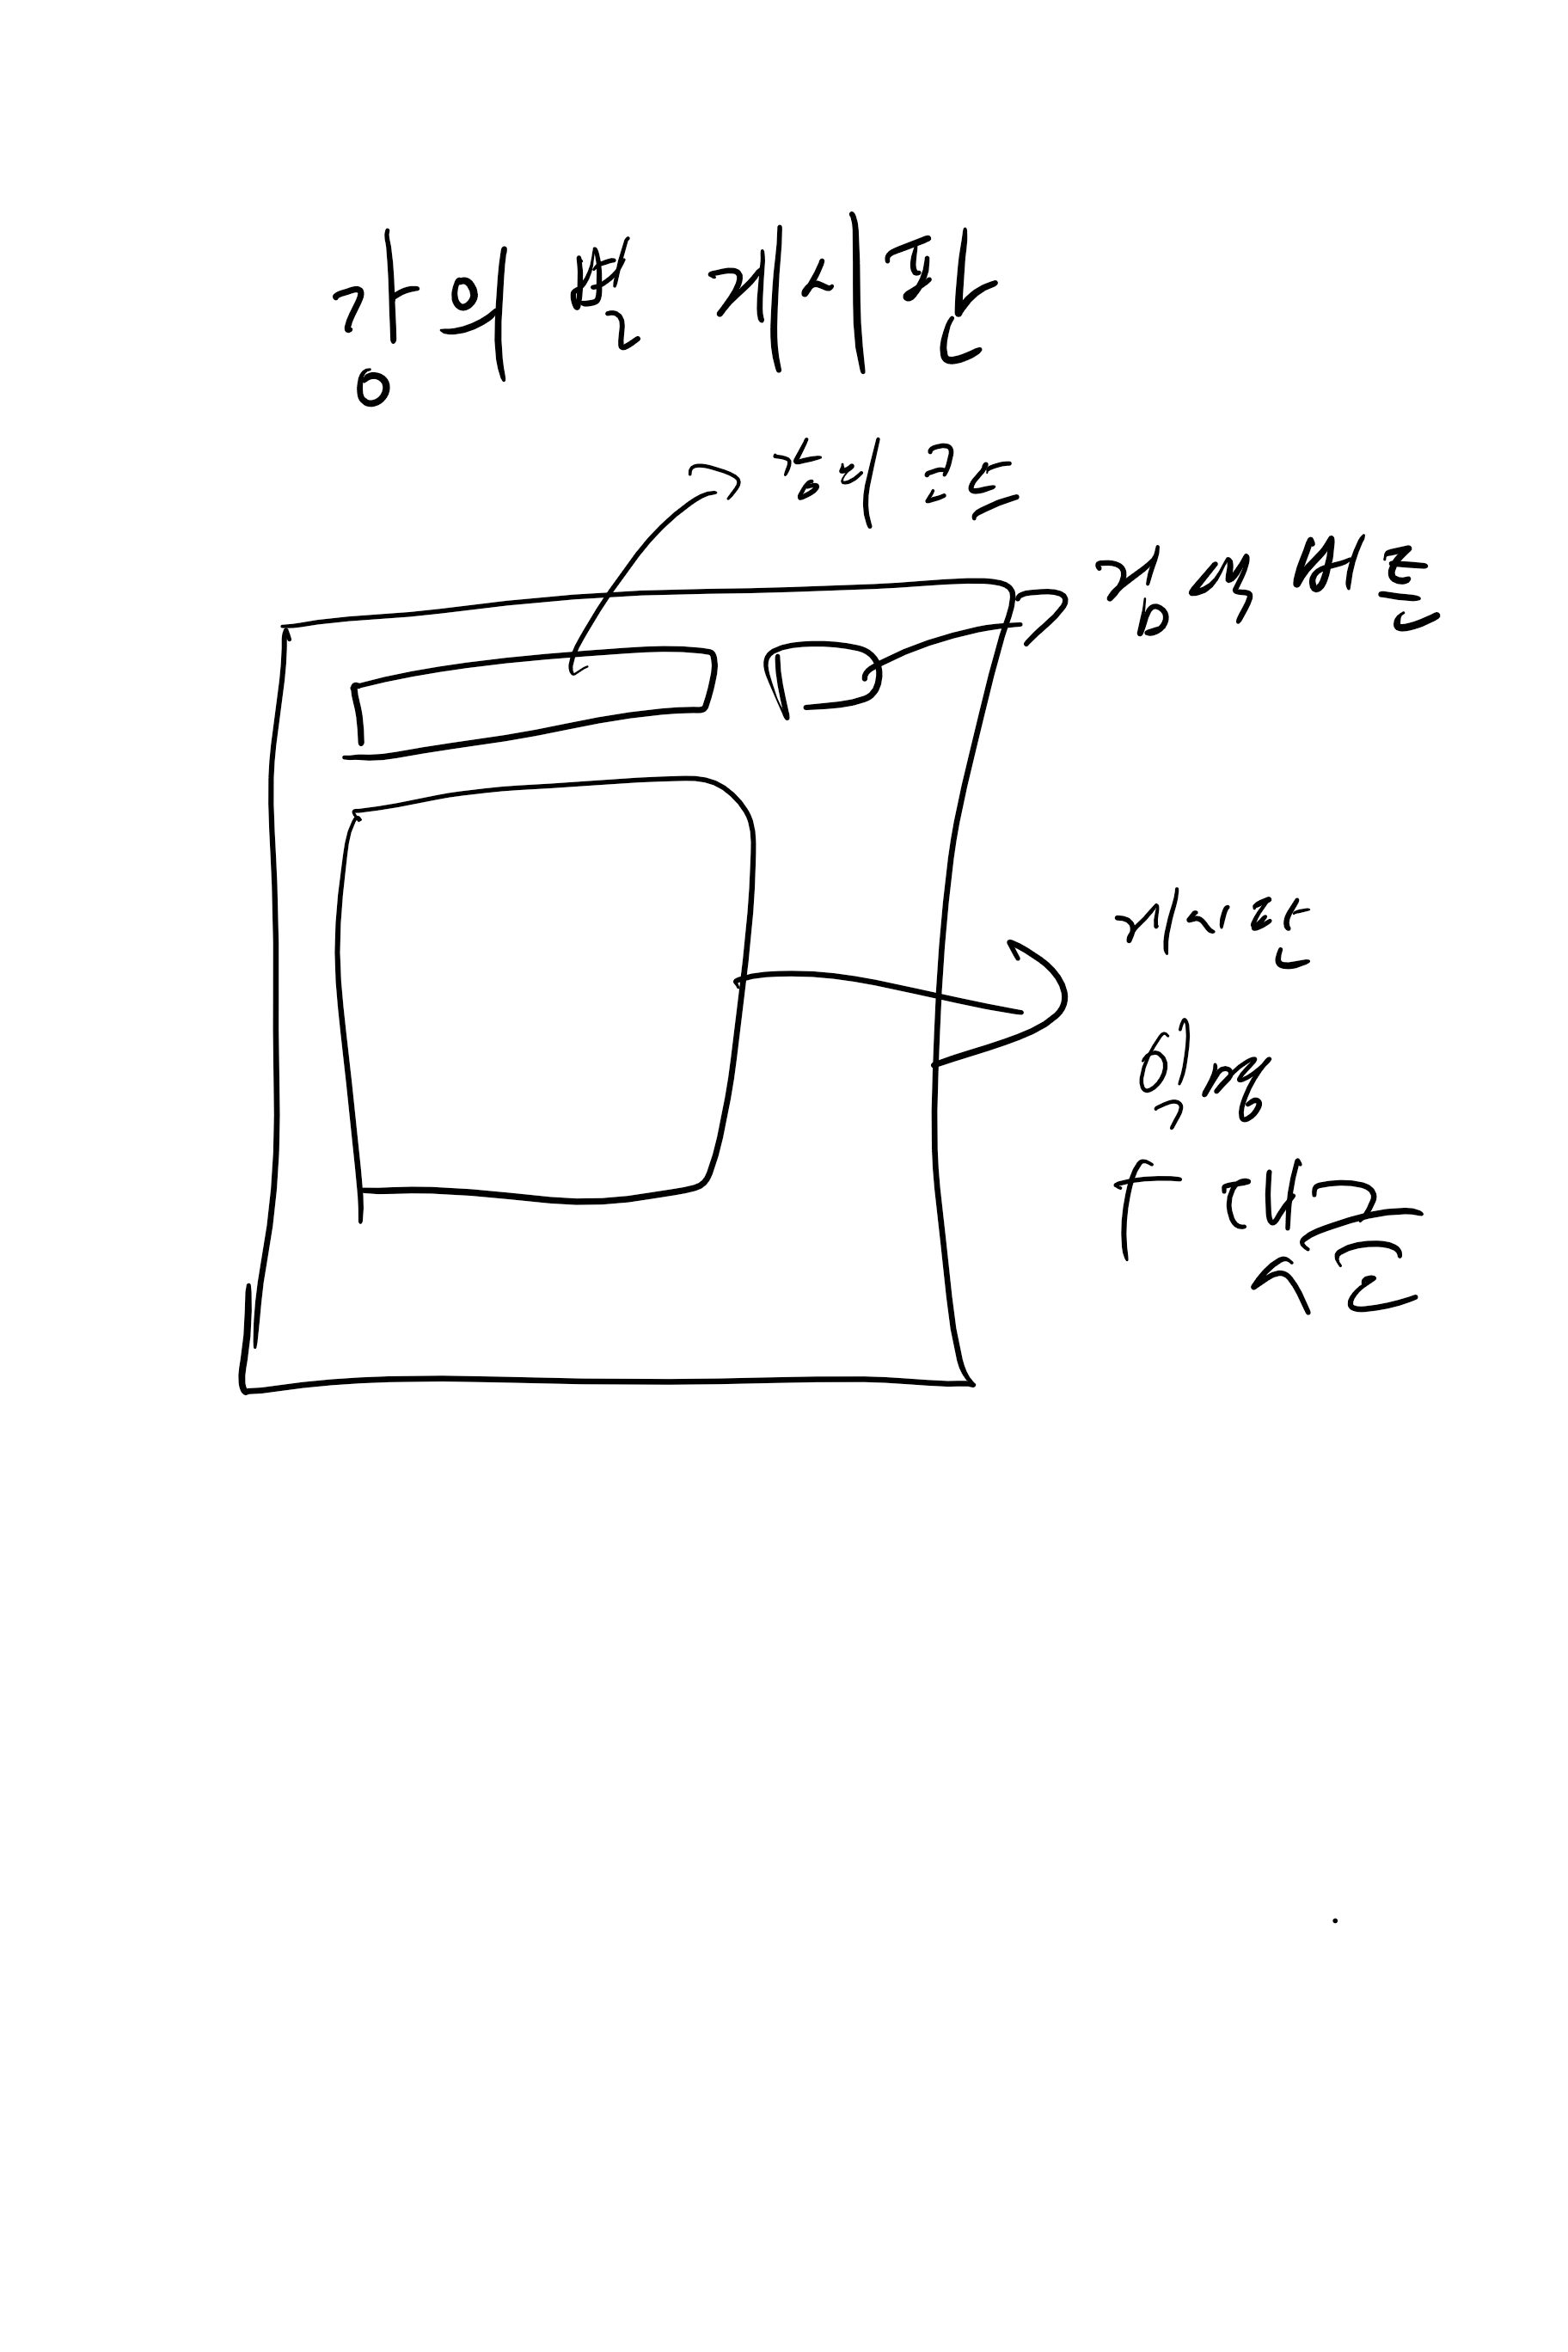 강의 별 게시판
강의 코드
검색 버튼
게시판
익명
+ 대댓글